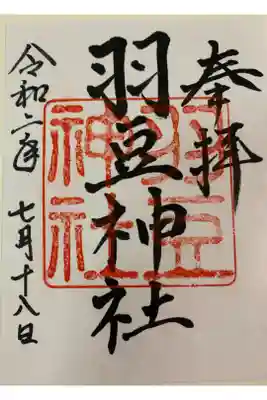 奉拝
羽豆神社
羽豆
神社
令和二年 七月十八日